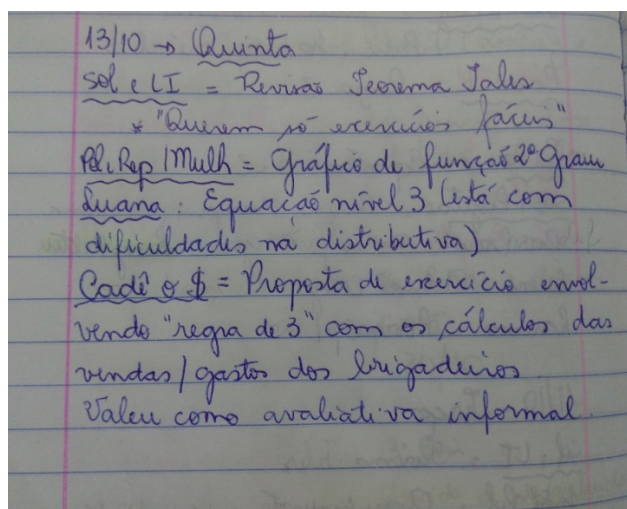 13/10 → Quinta
Sol e LI = Revisão Teorema Tales
* "Querem só exercícios fáceis"
Rep/Mulh = Gráfico de função 2º Grau
Luana: Equação nível 3 (está com
dificuldades na distributiva)
Cadê o $ = Proposta de exercício envol-
vendo "regra de 3" com os cálculos das
vendas/gastos dos brigadeiros
Valeu como avaliativa informal.